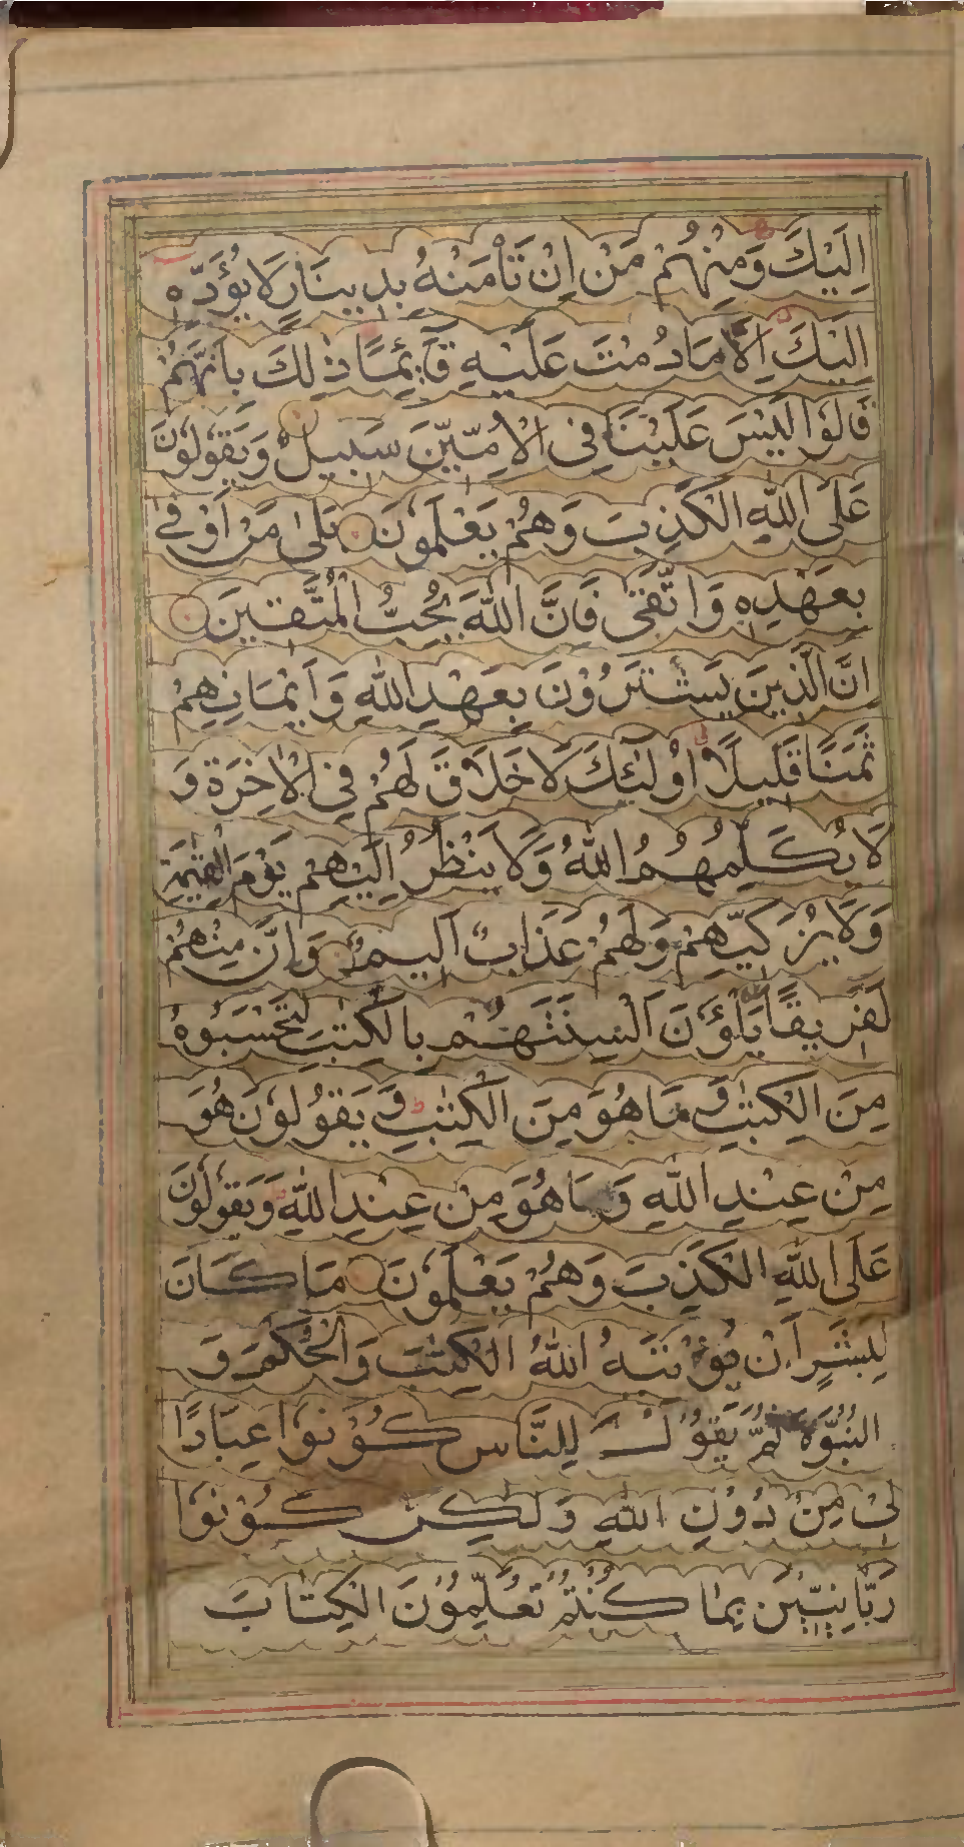 اِلَيْكَ وَمِنْهُمْ مَنْ اِنْ تَأْمَنْهُ بِدِينَارٍ لَا يُؤَدِّهِ
اِلَيْكَ اِلَّا مَا دُمْتَ عَلَيْهِ قَآئِمًا ذٰلِكَ بِاَنَّهُمْ
قَالُوْا لَيْسَ عَلَيْنَا فِى الْاُمِّيّٖنَ سَبِيلٌ وَيَقُولُوْنَ
عَلَى اللّٰهِ الْكَذِبَ وَهُمْ يَعْلَمُوْنَ بَلٰى مَنْ اَوْفٰى
بِعَهْدِهٖ وَاتَّقٰى فَاِنَّ اللّٰهَ يُحِبُّ الْمُتَّقِينَ
اِنَّ الَّذِينَ يَشْتَرُوْنَ بِعَهْدِ اللّٰهِ وَاَيْمَانِهِمْ
ثَمَنًا قَلِيلًا اُولٰٓئِكَ لَا خَلَاقَ لَهُمْ فِى الْاٰخِرَةِ وَ
لَا يُكَلِّمُهُمُ اللّٰهُ وَلَا يَنْظُرُ اِلَيْهِمْ يَوْمَ الْقِيٰمَةِ
وَلَا يُزَكِّيهِمْ وَلَهُمْ عَذَابٌ اَلِيمٌ وَاِنَّ مِنْهُمْ
لَفَرِيقًا يَلْوٗنَ اَلْسِنَتَهُمْ بِالْكِتٰبِ لِتَحْسَبُوهُ
مِنَ الْكِتٰبِ وَ مَا هُوَ مِنَ الْكِتٰبِ وَ يَقُولُونَ هُوَ
مِنْ عِنْدِ اللّٰهِ وَمَا هُوَ مِنْ عِنْدِ اللّٰهِ وَيَقُولُوْنَ
عَلَى اللّٰهِ الْكَذِبَ وَهُمْ يَعْلَمُوْنَ مَا كَانَ
لِبَشَرٍ اَنْ يُؤْتِيَهُ اللّٰهُ الْكِتٰبَ وَالْحُكْمَ وَ
النُّبُوَّةَ ثُمَّ يَقُوْلَ لِلنَّاسِ كُوْنُوْا عِبَادًا
لِىْ مِنْ دُوْنِ اللّٰهِ وَلٰكِنْ كُوْنُوْا
رَبَّانِيّٖنَ بِمَا كُنْتُمْ تُعَلِّمُوْنَ الْكِتَابَ